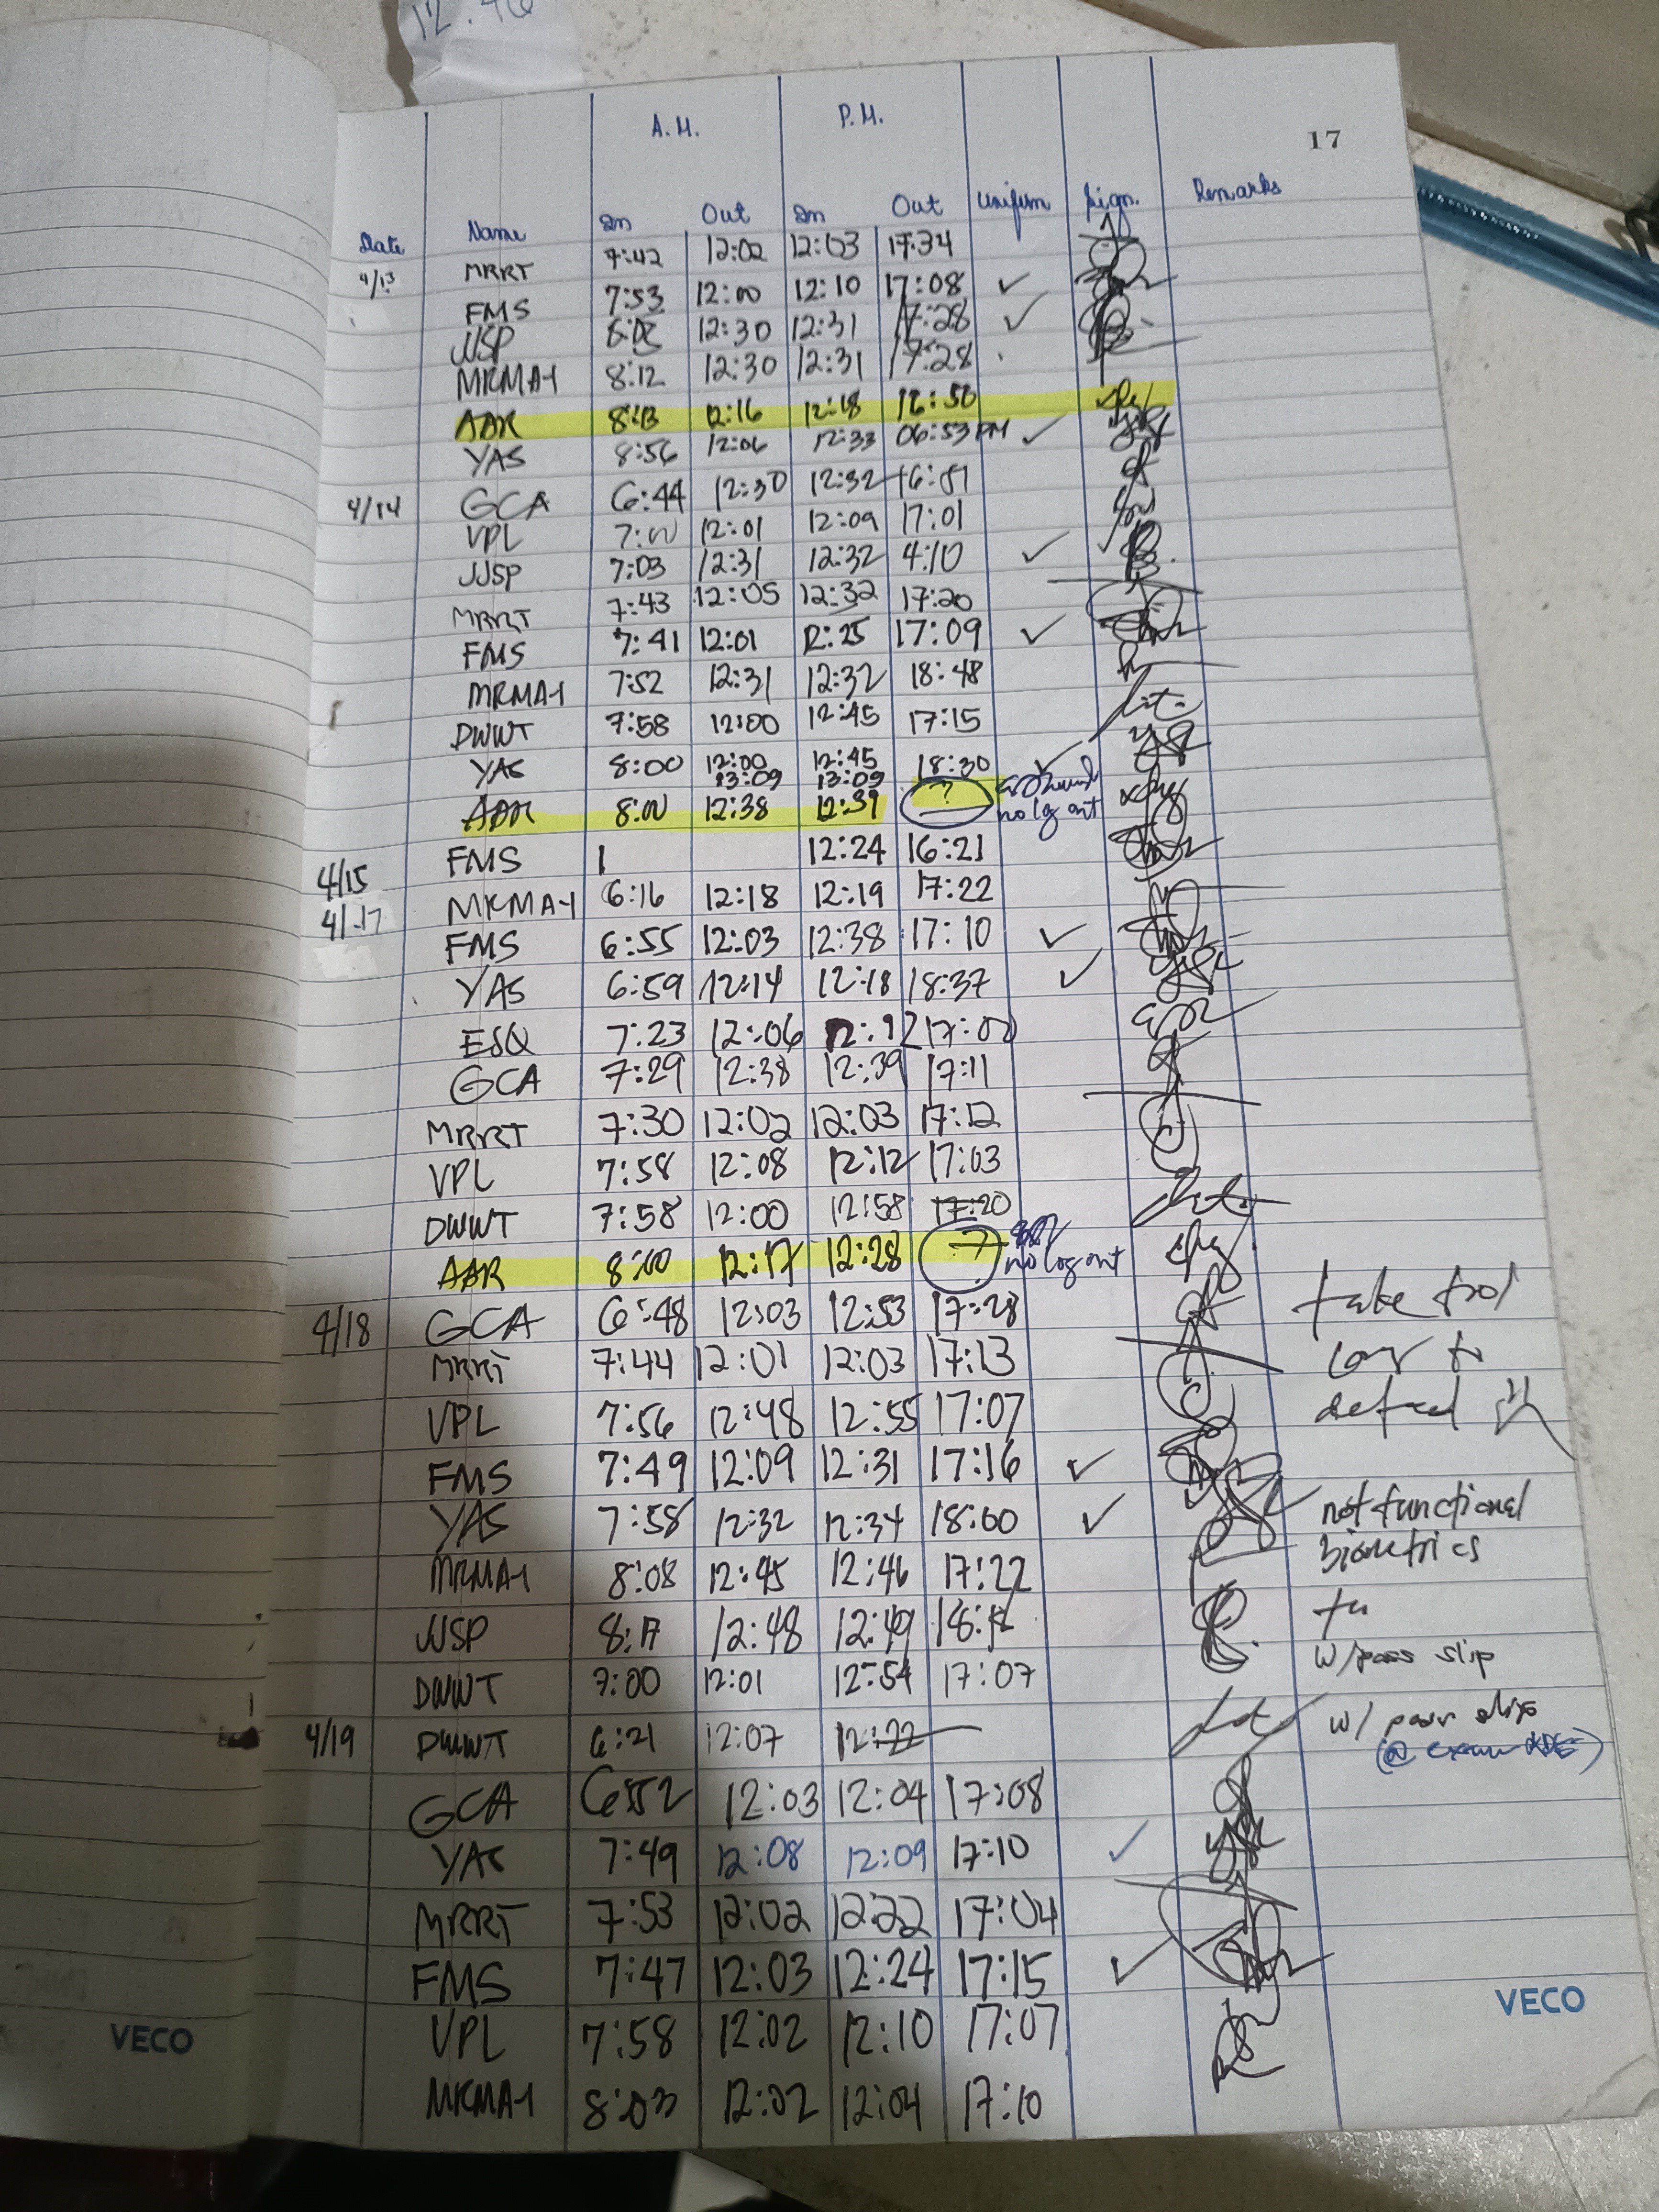 12:46
A.M. P.M.
17
Date Name In Out In Out Uniform Sign. Remarks
4/13 MRRT 7:42 12:02 12:03 17:34
FMS 7:53 12:00 12:10 17:08 ✓
JJSP 12:30 12:31 17:28 ✓
MRMAH 8:12 12:30 12:31 17:28
AAR 8:13 12:16 12:18
YAS 8:56 12:06 12:33 06:53 PM ✓
4/14 GCA 6:44 12:30 12:32
VPL 7:00 12:01 12:09 17:01
JJSP 7:03 12:31 12:32 4:10 ✓
MRRT 7:43 12:05 12:32 17:20
FMS 7:41 12:01 12:25 17:09 ✓
MRMAH 7:52 12:31 12:32 18:48
DWWT 7:58 12:00 12:45 17:15
YAS 8:00 12:00 12:45 18:30 ✓
13:09 13:09
AAR 8:00 12:38 12:39 ? no log out
4/15 FMS 12:24 16:21
4/17 MRMAH 6:16 12:18 12:19 17:22
FMS 6:55 12:03 12:38 17:10 ✓
YAS 6:59 12:14 12:18 18:37 ✓
ESQ 7:23 12:06 12:12 17:00
GCA 7:29 12:38 12:39 17:11
MRRT 7:30 12:02 12:03 17:12
VPL 7:58 12:08 12:12 17:03
DWWT 7:58 12:00 12:58 17:20
AAR 8:00 12:17 12:28 ? no log out
4/18 GCA 6:48 12:03 12:53 17:28
MRRT 7:44 12:01 12:03 17:13
VPL 7:56 12:48 12:55 17:07
FMS 7:49 12:09 12:31 17:16 ✓
YAS 7:58 12:32 12:34 18:00 ✓ not functional
MRMAH 8:08 12:45 12:46 17:22 biometrics
JJSP 8:17 12:48 12:49
w/pass slip
DWWT 7:00 12:01 12:54 17:07
4/19 DWWT 6:21 12:07 12:22 w/ pass slip
GCA 6:52 12:03 12:04 17:08
YAS 7:49 12:08 12:09 17:10 ✓
MRRT 7:53 12:02 12:22 17:04
FMS 7:47 12:03 12:24 17:15 ✓
VPL 7:58 12:02 12:10 17:07
MRMAH 8:03 12:02 12:04 17:10
VECO
VECO